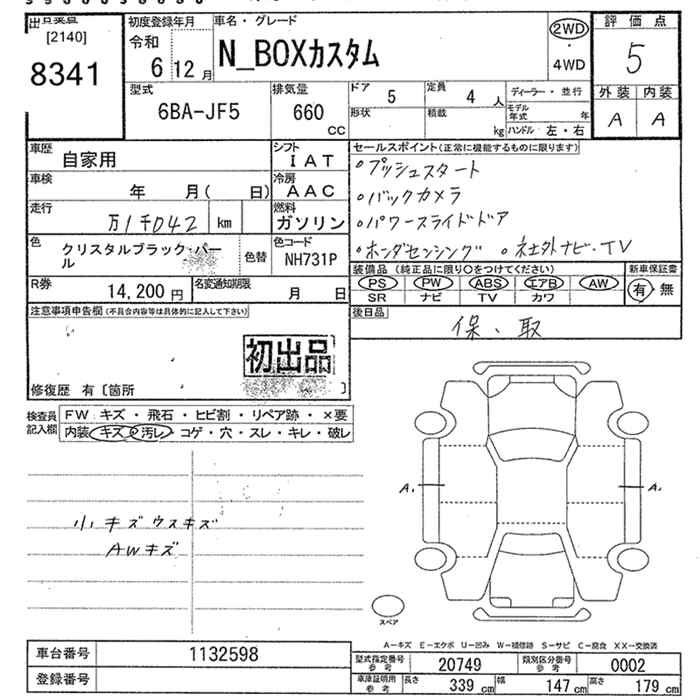 出品票
[2140]
8341
初度登録年月
令和
6 12 月
車名・グレード
N_BOXカスタム
2WD
・
4WD
評価点
5
型式
6BA-JF5
排気量
660
CC
ドア
5
定員
4 人
ディーラー・並行
形状
積載
kg
モデル年式 年
ハンドル 左・右
外装 内装
A A
車歴
自家用
シフト
IAT
セールスポイント(正常に機能するものに限ります)
プッシュスタート
車検
年 月( 日)
冷房
AAC
バックカメラ
走行
万1千042 km
燃料
ガソリン
パワースライドドア
色
クリスタルブラック・パール
色替
色コード
NH731P
ホンダセンシング 社外ナビ・TV
R券
14,200 円
名変通知期限
月 日
装備品 (純正品に限り○をつけてください)
新車保証書
PS PW ABS エアB AW
有・無
SR ナビ TV カワ
注意事項申告欄(不具合内容等は具体的に記入して下さい)
後日品
保、取
初出品
修復歴 有〔箇所 〕
検査員
記入欄
FW キズ・飛石・ヒビ割・リペア跡・×要
内装 キズ・汚レ・コゲ・穴・スレ・キレ・破レ
A₁ A₁
小キズウスキズ
AWキズ
スペア
A-キズ E-エクボ U-凹み W-補修跡 S-サビ C-腐食 XX-交換済
車台番号
1132598
登録番号
型式指定番号
参考
20749
類別区分番号
参考
0002
車庫証明用
参考
長さ 339 cm 幅 147 cm 高さ 179 cm